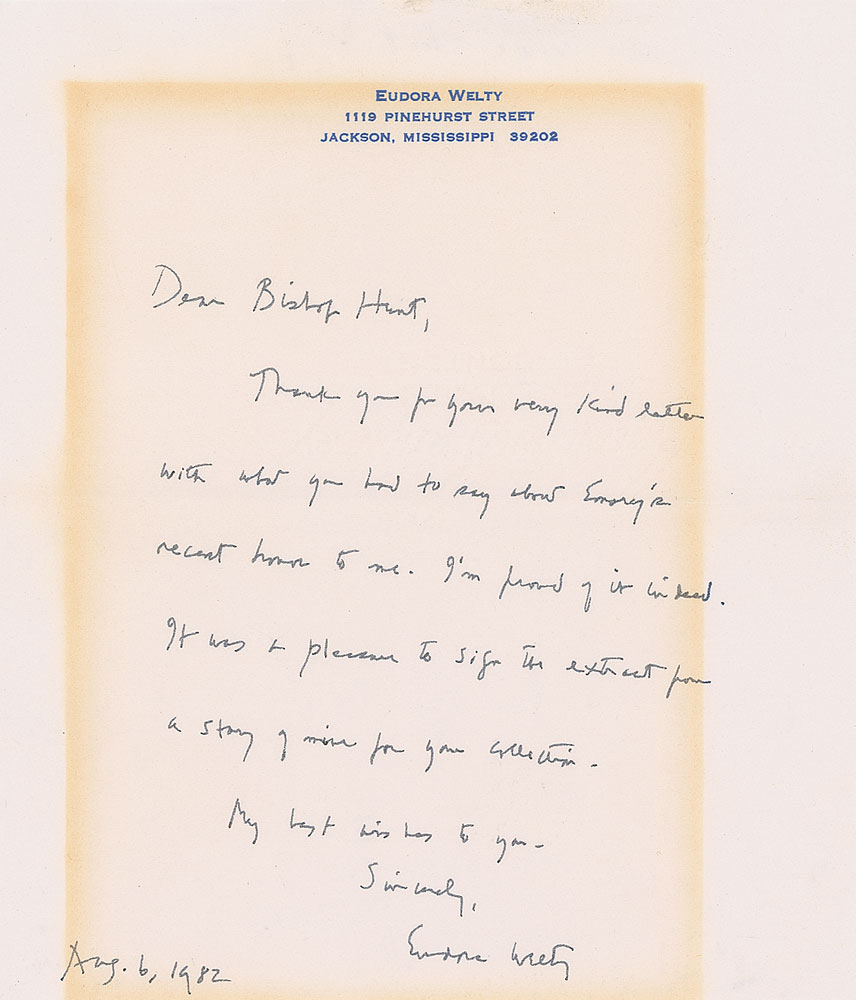 EUDORA WELTY
1119 PINEHURST STREET
JACKSON, MISSISSIPPI 39202
Dear Bishop Hunt,
Thank you for your very kind letter
with what you had to say about Emory's
recent honor to me. I'm proud of it indeed.
It was a pleasure to sign the extract from
a story of mine for your collection.
My best wishes to you.
Sincerely,
Eudora Welty
Aug. 6, 1982